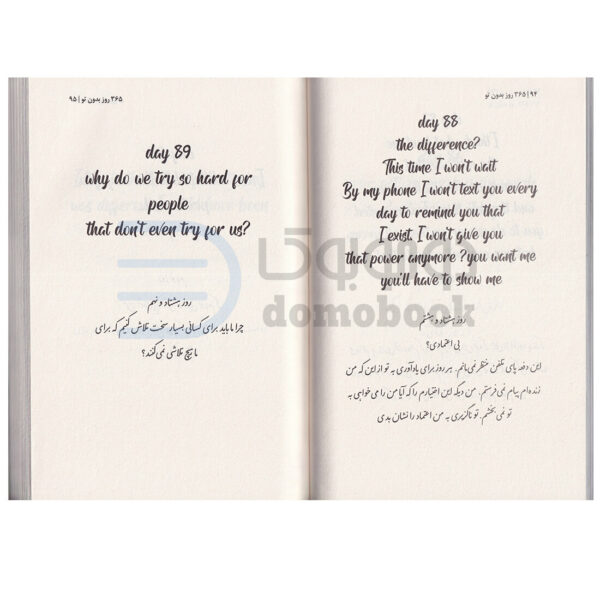 ۹۴ | ۳۶۵ روز بدون تو
day 88
the difference?
This time I won't wait
By my phone I won't text you every
day to remind you that
I exist, I won't give you
that power anymore ?you want me
you'll have to show me
روز هشتاد و هشتم
بی اعتمادی؟
این دفعه پای تلفن منتظر نمی‌مانم. هر روز برای یادآوری به تو از این که من
زنده‌ام پیام نمی‌فرستم. من دیگه این اختیارم را که آیا من را می‌خواهی به
تو نمی‌بخشم. تو ناگزیری به من اعتماد را نشان بدی
۳۶۵ روز بدون تو | ۹۵
day 89
why do we try so hard for
people
that don't even try for us?
روز هشتاد و نهم
چرا ما باید برای کسانی بسیار سخت تلاش کنیم که برای
ما هیچ تلاشی نمی‌کنند؟
دوموبوک
domobook